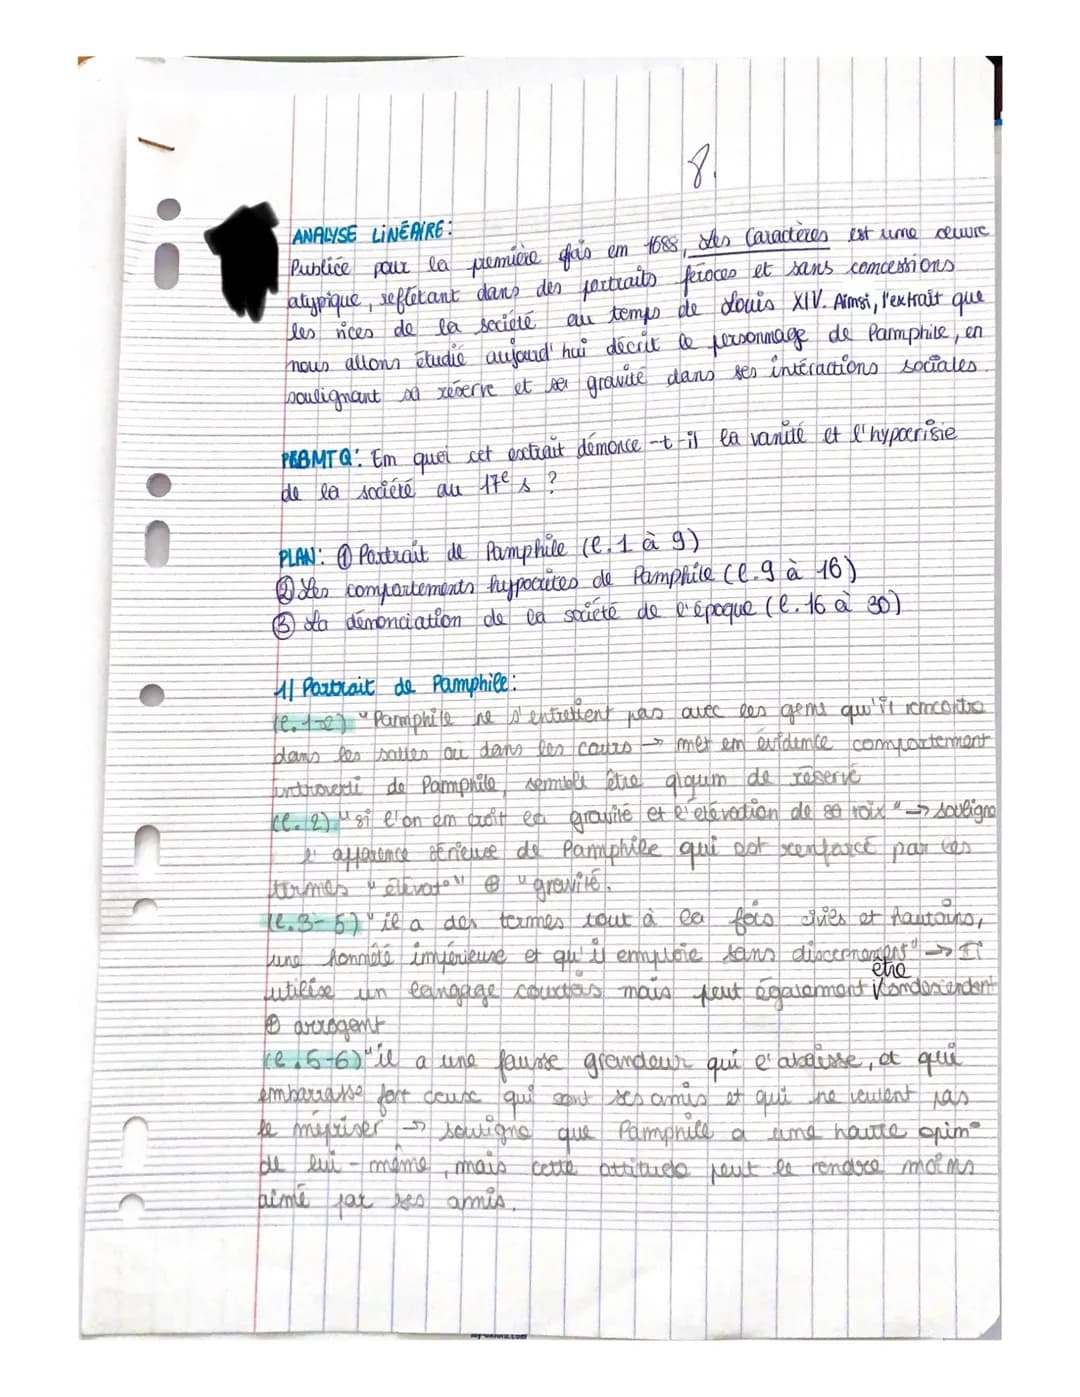 8.
ANALYSE LINÉAIRE:
Publiée pour la première fois em 1688, Les Caractères est une oeuvre
atypique, reflétant dans des portraits féroces et sans concessions
les vices de la société au temps de Louis XIV. Aimsi, l'extrait que
nous allons étudié aujourd'hui décrit le personnage de Pamphile, en
soulignant sa réserve et sa gravité dans ses intéractions sociales.
PBBMTQ: Em quoi cet extrait dénonce-t-il la vanité et l'hypocrisie
de la société au 17e s ?
PLAN: ① Portrait de Pamphile (l.1 à 9)
② Les comportements hypocrites de Pamphile (l.9 à 16)
③ La dénonciation de la société de l'époque (l.16 à 30)
1/ Portrait de Pamphile:
(l.1-2) "Pamphile ne s'entretient pas avec les gens qu'il rencontre
dans les salles ou dans les cours → met em évidence comportement
introverti de Pamphile, semble être qlqum de réservé
(l.2) "si l'on em croit sa gravité et l'élévation de sa voix" → souligne
l'apparence sérieuse de Pamphile qui est renforcé par les
termes "élévato" ⊕ "gravité.
(l.3-5) "il a des termes tout à la fois civils et hautains,
une honnêté impérieuse et qu'il emploie sans discernement" → Il
utilise un langage courtois mais peut également être condescendant
⊕ arrogant
(l.5-6) "il a une fausse grandeur qui l'abaisse, et qui
embarrasse fort ceux qui sont ses amis et qui ne veulent pas
le mépriser → souligne que Pamphile a une haute opim°
de lui-même, mais cette attitude peut le rendre moins
aimé par ses amis.